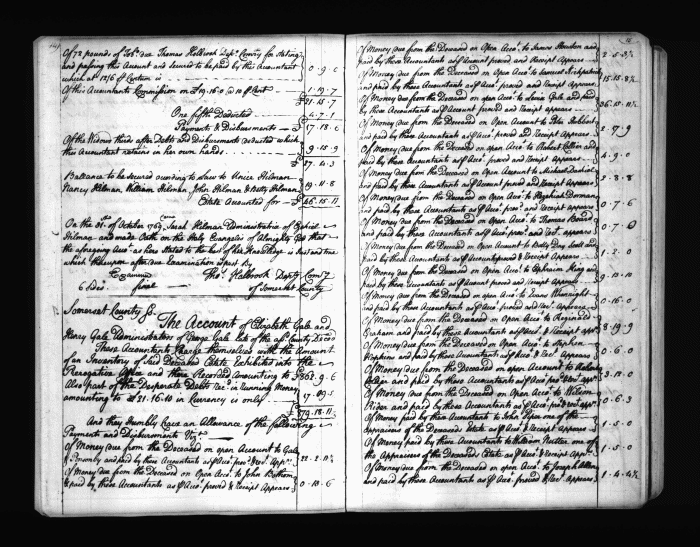 Of 72 pounds of Tobo. due Thomas Holbrook Depy. Comry for Stating
and passing this Account and Secured to be paid by this Accountant
which at 12/6 Ct Curtain is 0.9.0
Of this Accountants Commission on £19.16.0 @ 10 Ct 1.19.7
£21.15.7
One fifth Deducted 4.7.1
Payments & Disbursements £17.18.6
Of the Widows thirds after Debts and Disbursements Deducted which
this Accountant retains in her own hands 9.15.9
£27.4.3
Ballance to be secured according to Law to Unice Hilman
Nancy Hilman William Hilman John Hilman & Betty Hilman 19.11.8
Estate Accounted for £46.15.11
On the of October 1769 Came Sarah Hilman Administratrix of
Hilman and made Oath on the Holy Evangelis of Almighty God that
the aforegoing Acct. as here stated to the best of her Knowledge is Just and true
which thereupon after due Examination is past By
Examined Thos. Holbrook Depty Com'ry
6 Dec. final of Somerset County
Somerset County Ss.
The Account of Elizabeth Gale and
Henry Gale Administrators of George Gale late of the afsd. County Deced
These Accountants Charge themselves with the Amount
of an Inventory of Said Deceased Estate Exhibited into the
Perogative Office and there Recorded Amounting to £362.9.6
Also part of the Desperate Debts Recd. in Running Money
amounting to £21.16.10 in Currency is only 17.09.5
£379.18.11
And they humbly Crave an Allowance of the following
Payments and Disbursements Vizt.
Of Money due from the Deceased on open Account to Gale
& Thrumby and paid by these Accountants as Acct. prov'd & Rect. Appr. 22.2.11½
Of Money due from the Deceased on Open Acct. to John
& paid by these Accountants as Acct. proved & Receipt Appears 0.10.6
15
Of Money due from the Deceased on Open Acct. to James Houston and
paid by these Accountants as Account proved and Receipt Appears 2.5.3½
Of Money due from the Deceased on Open Acct. to Samuel Kirkpatrick
and paid by these Accountants as Acct. proved & Receipt Appears 15.15.8½
Of Money due from the Deceased on open Acct. to Levin Gale and paid
by these Accountants as Account proved and Receipt appears 36.15.11½
Of Money due from the Deceased on open Acct. to
paid by these Accountants as Acct. proved and Receipt Appears 2.7.9
Of Money due from the Deceased on open Acct. to Robert Collier and
paid by these Accountants as Acct. proved and Receipt Appears 4.9.0
Of Money due from the Deceased on Open Account to Michael
and paid by these Accountants as Account proved and Receipt Appears 2.8.8
Of Money due from the Deceased on Open Acct. to Hezekiah Dorman
and paid by these Accountants as Acct. proved and receipt appears 0.7.6
Of Money due from the Deceased on Open Acct. to Thomas
and paid by these Accountants as Acct. proved and rect. appears 0.7.0
Of Money due from the Deceased on Open Account to Betty Day Scott and
paid by these Accountants as Account proved & Receipt Appears 1.2.0
Of Money due from the Deceased on Open Acct. to Ephraim King and
paid by these Accountants as Account proved and Receipt Appears 9.13.10
Of Money due from the Deceased on open Acct. to Evans
and paid by these Accountants as Acct. proved and rect. Appears 0.16.0
Of Money due from the Deceased on open Acct. to Reginald
Graham and paid by these Accountants as Acct. & Receipt 8.19.9
Of Money due from the Deceased on open Acct. to Stephen
Hopkins and paid by these Accountants as Acct. & Rect. Appears 0.6.0
Of Money due from the Deceased on open Account to
Rider and paid by these Accountants as Acct. 3.12.0
Of Money due from the Deceased on Open Acct. to William
Rider and paid by these Accountants as Acct. 0.6.3
Of Money paid by these Accountants to John Piper one of the
Appraisers of the Deceaseds Estate as Acct. & Receipt Appears 1.5.0
Of Money paid by these Accountants to William Nutter one of
the Appraisers of the Deceaseds Estate as Acct. & Receipt Appears 1.5.0
Of Money due from the Deceased on open Acct. to Joseph Allen
and paid by these Accountants as Acct. proved & Rect. Appears 1.4.4½